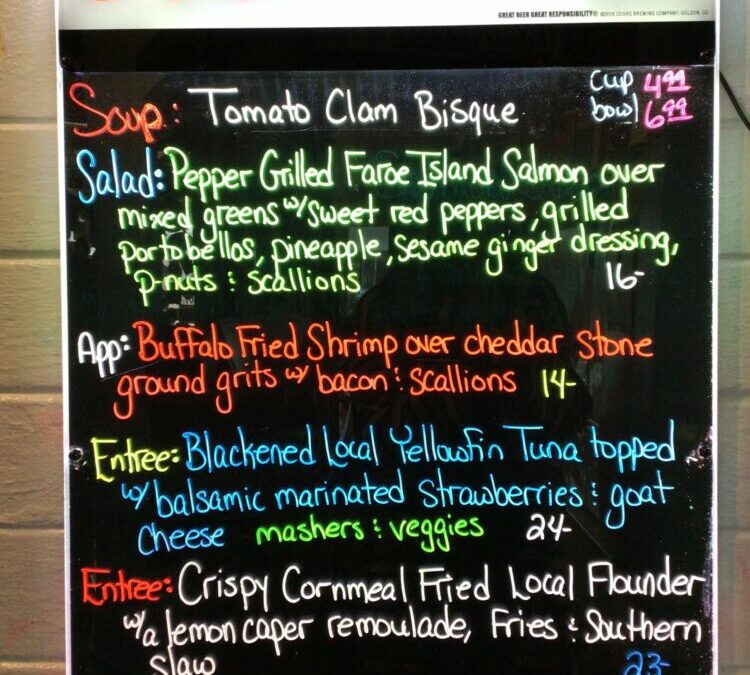 GREAT BEER GREAT RESPONSIBILITY® ©2018 COORS BREWING COMPANY, GOLDEN, CO
Soup: Tomato Clam Bisque cup 4.99
bowl 6.99
Salad: Pepper Grilled Faroe Island Salmon over
mixed greens w/ sweet red peppers, grilled
portobellos, pineapple, sesame ginger dressing,
p-nuts & scallions 16-
App: Buffalo Fried Shrimp over cheddar stone
ground grits w/ bacon & scallions 14-
Entree: Blackened Local Yellowfin Tuna topped
w/ balsamic marinated strawberries & goat
cheese mashers & veggies 24-
Entree: Crispy Cornmeal Fried Local Flounder
w/ a lemon caper remoulade, Fries & Southern
slaw 23-